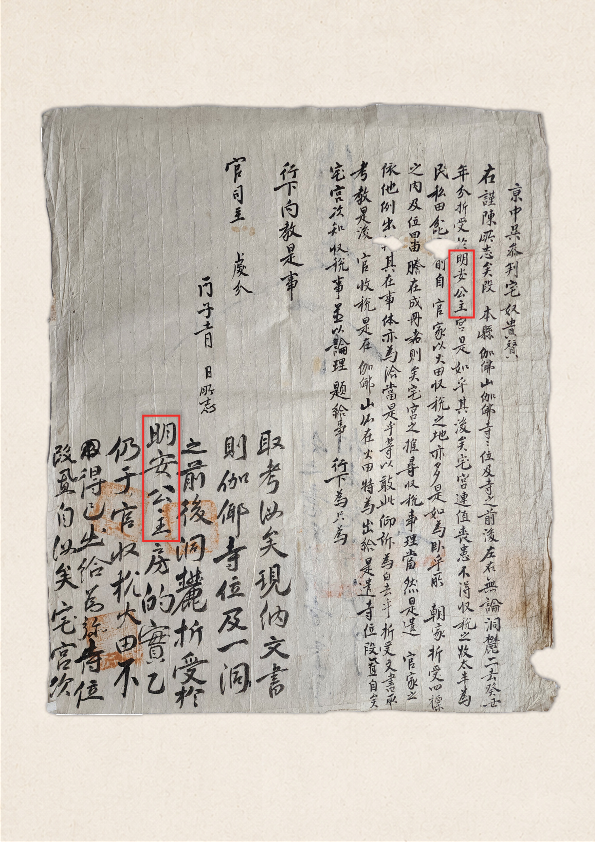 京中吳參判宅奴貴賢
右謹陳所志矣段 本縣伽倻山伽倻寺寺位及寺前後左右無論洞麓二去癸丑
年分折受於明安公主宮是如乎其後矣宅宮連值喪患不得收稅之致太半為
民私田 前自 官家以火田收稅之地亦多是如為臥乎所 朝家折受四標
之內及位畓謄在成冊者則矣宅宮之推尋收稅事理當然是遣 官家之
依他例出 其在事体亦為洽當是乎等以敢此仰訴為白去乎折受文書取
考教是後 官收稅是在伽倻山所在火田特為出給是遣寺位段置自矣
宅宮次知收稅事並以論理題給事 行下為只為
行下向教是事
官司主 處分
丙子十一月 日所志
取考汝矣現納文書
則伽倻寺位及一洞
之前後洞麓折受於
明安公主房的實乙
仍于官收稅火田不
得已出給為旀寺位
段置自汝矣宅宮次